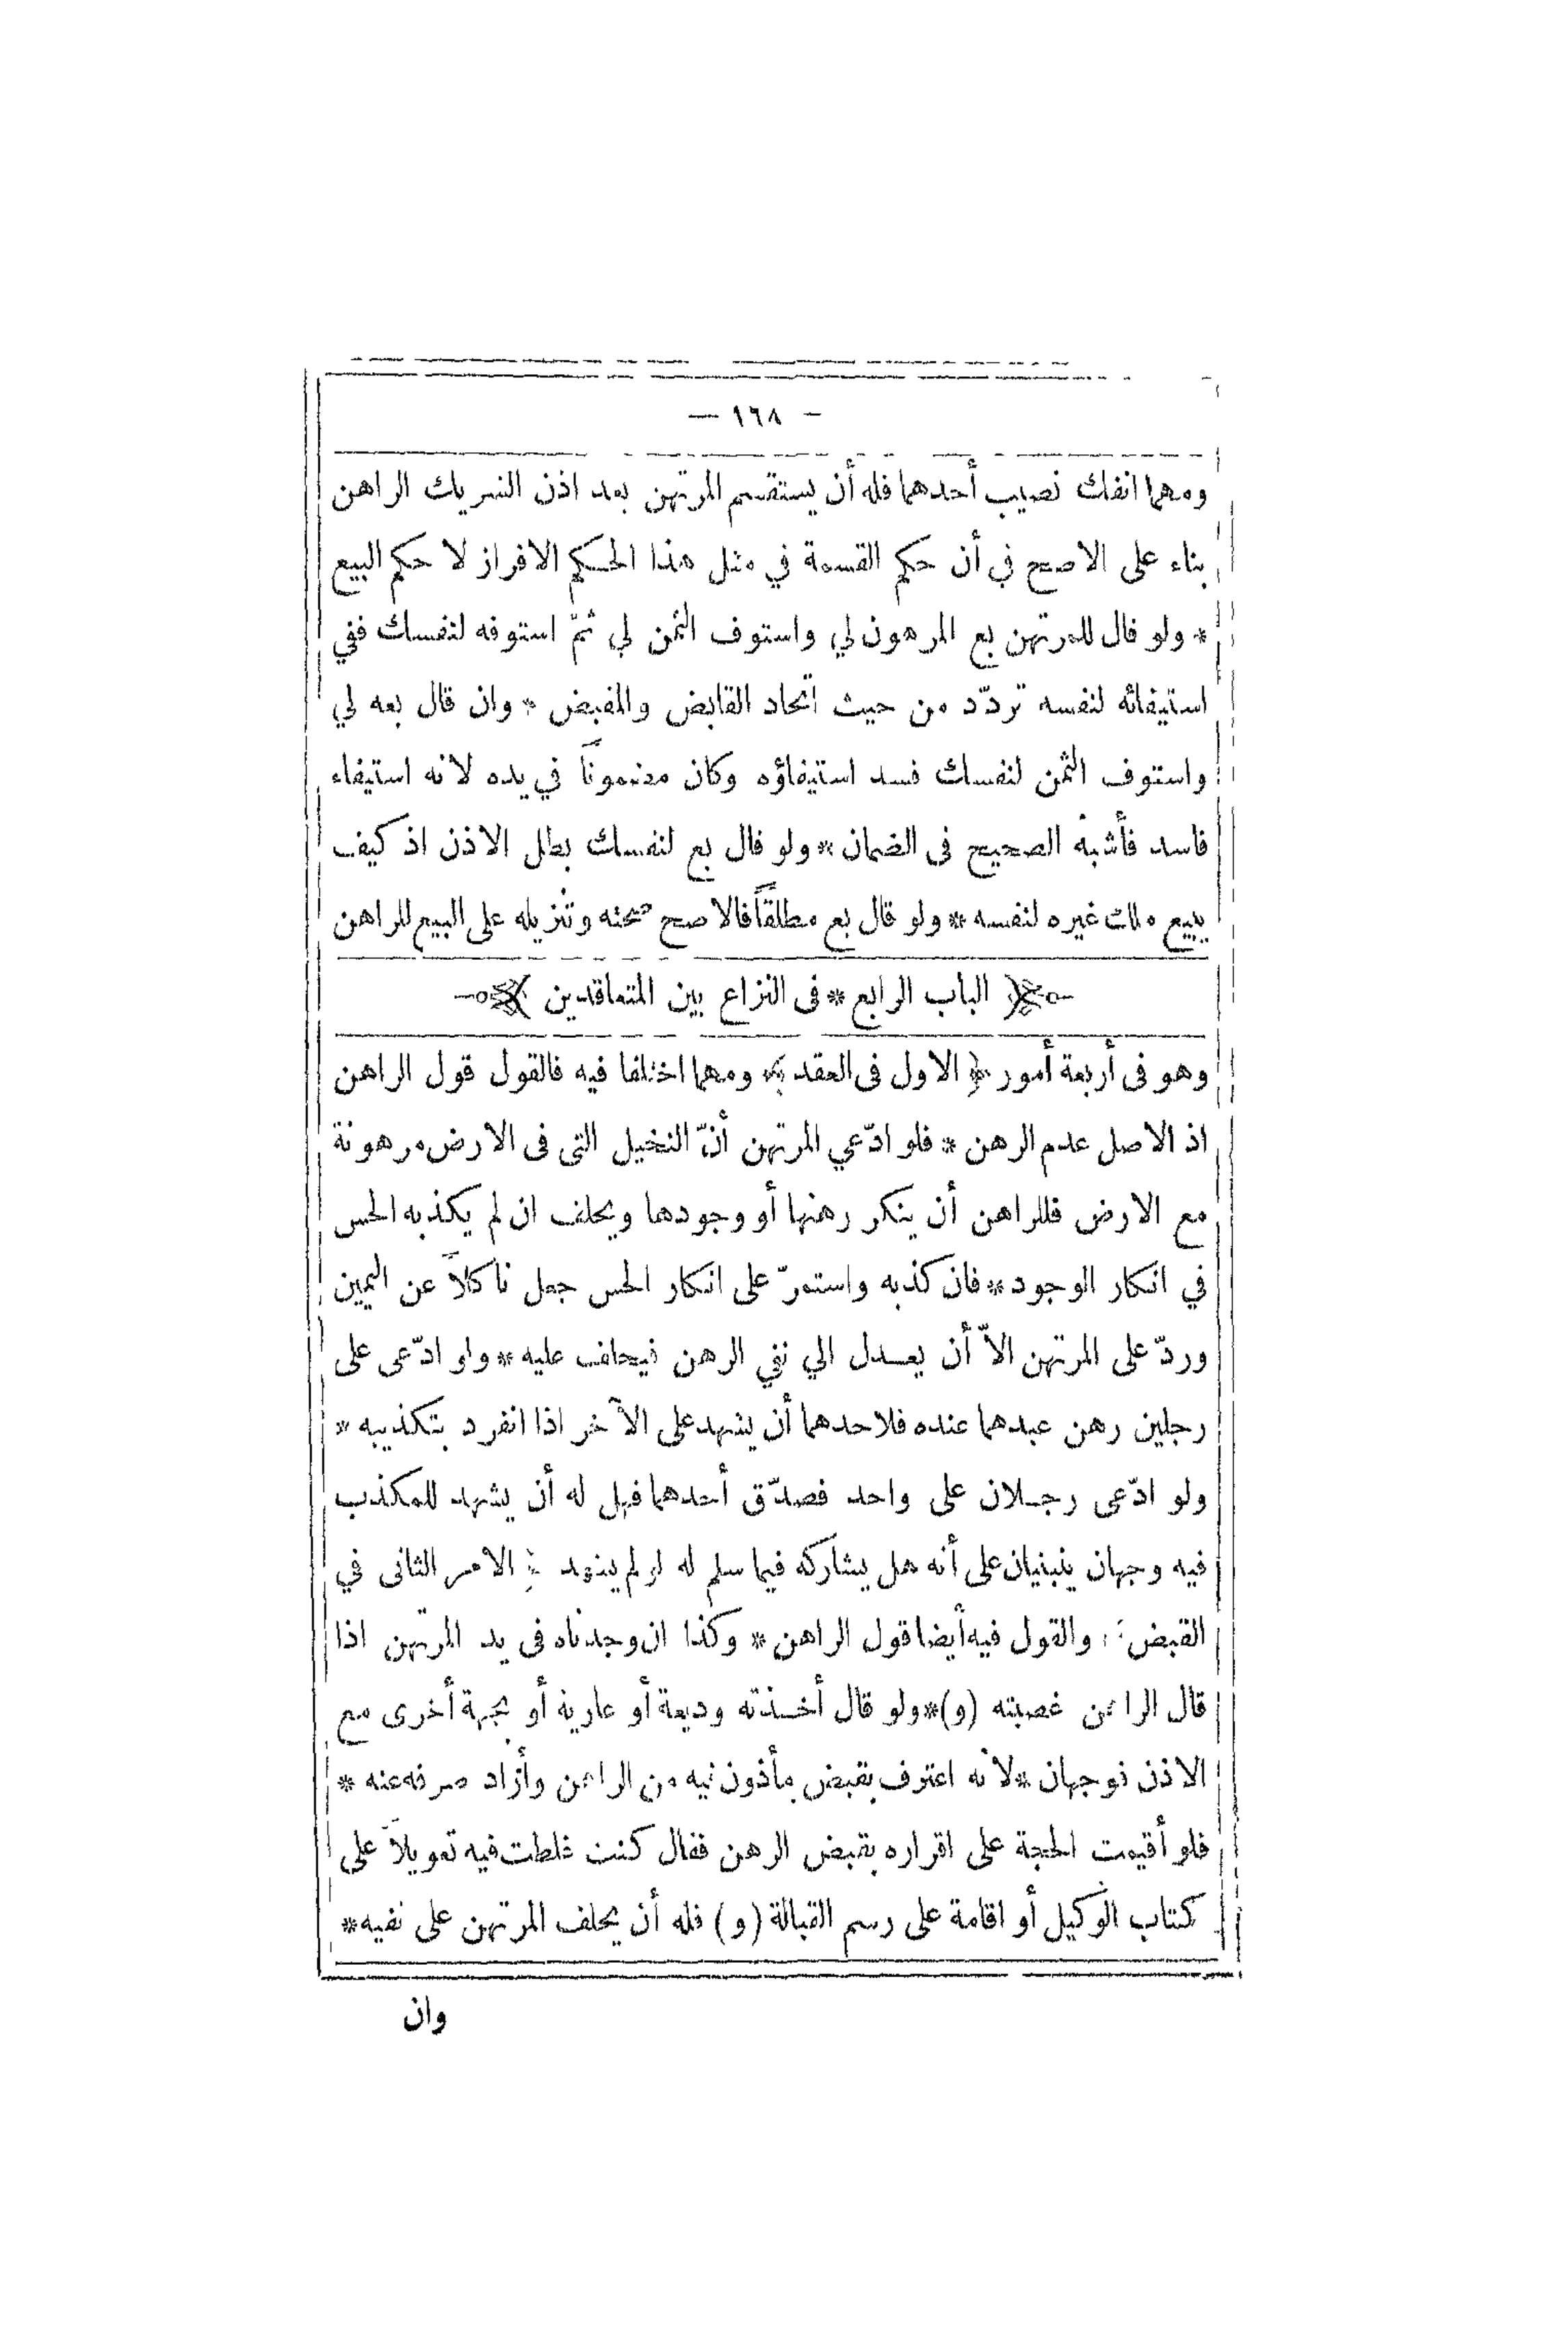 — ١٦٨ —
ومهما انفك نصيب أحدهما فله أن يستقسم المرتهن بعد اذن الشريك الراهن
بناء على الاصح في أن حكم القسمة في مثل هذا الحكم الافراز لا حكم البيع
* ولو قال للمرتهن بع المرهون لي واستوف الثمن لي ثمّ استوفه لنفسك ففي
استيفائه لنفسه تردّد من حيث اتحاد القابض والمقبض * وان قال بعه لي
واستوف الثمن لنفسك فسد استيفاؤه وكان مضمونًا في يده لانه استيفاء
فاسد فأشبه الصحيح فى الضمان * ولو قال بع لنفسك بطل الاذن اذ كيف
يبيع ملك غيره لنفسه * ولو قال بع مطلقًا فالاصح صحته وتنزيله على البيع للراهن
الباب الرابع * فى النزاع بين المتعاقدين
وهو فى أربعة أمور ﴿ الاول فى العقد ﴾ ومهما اختلفا فيه فالقول قول الراهن
اذ الاصل عدم الرهن * فلو ادّعي المرتهن أنّ النخيل التى فى الارض مرهونة
مع الارض فللراهن أن ينكر رهنها أو وجودها ويحلف ان لم يكذبه الحس
في انكار الوجود * فان كذبه واستمرّ على انكار الحس جعل ناكلاً عن اليمين
وردّ على المرتهن الاّ أن يعدل الي نفي الرهن فيحلف عليه * ولو ادّعى على
رجلين رهن عبدهما عنده فلاحدهما أن يشهد على الآخر اذا انفرد بتكذيبه *
ولو ادّعى رجلان على واحد فصدّق أحدهما فهل له أن يشهد للمكذب
فيه وجهان ينبنيان على أنه هل يشاركه فيما سلم له لو لم يشهد ﴿ الامر الثانى في
القبض ﴾ والقول فيه أيضا قول الراهن * وكذا ان وجدناه فى يد المرتهن اذا
قال الراهن غصبته (و) * ولو قال أخذته وديعة أو عارية أو بجهة أخرى مع
الاذن فوجهان * لانه اعترف بقبض مأذون فيه من الراهن وأراد صرفه عنه *
فلو أقيمت الحجة على اقراره بقبض الرهن فقال كنت غلطت فيه تعويلاً على
كتاب الوكيل أو اقامة على رسم القبالة (و) فله أن يحلف المرتهن على نفيه *
وان